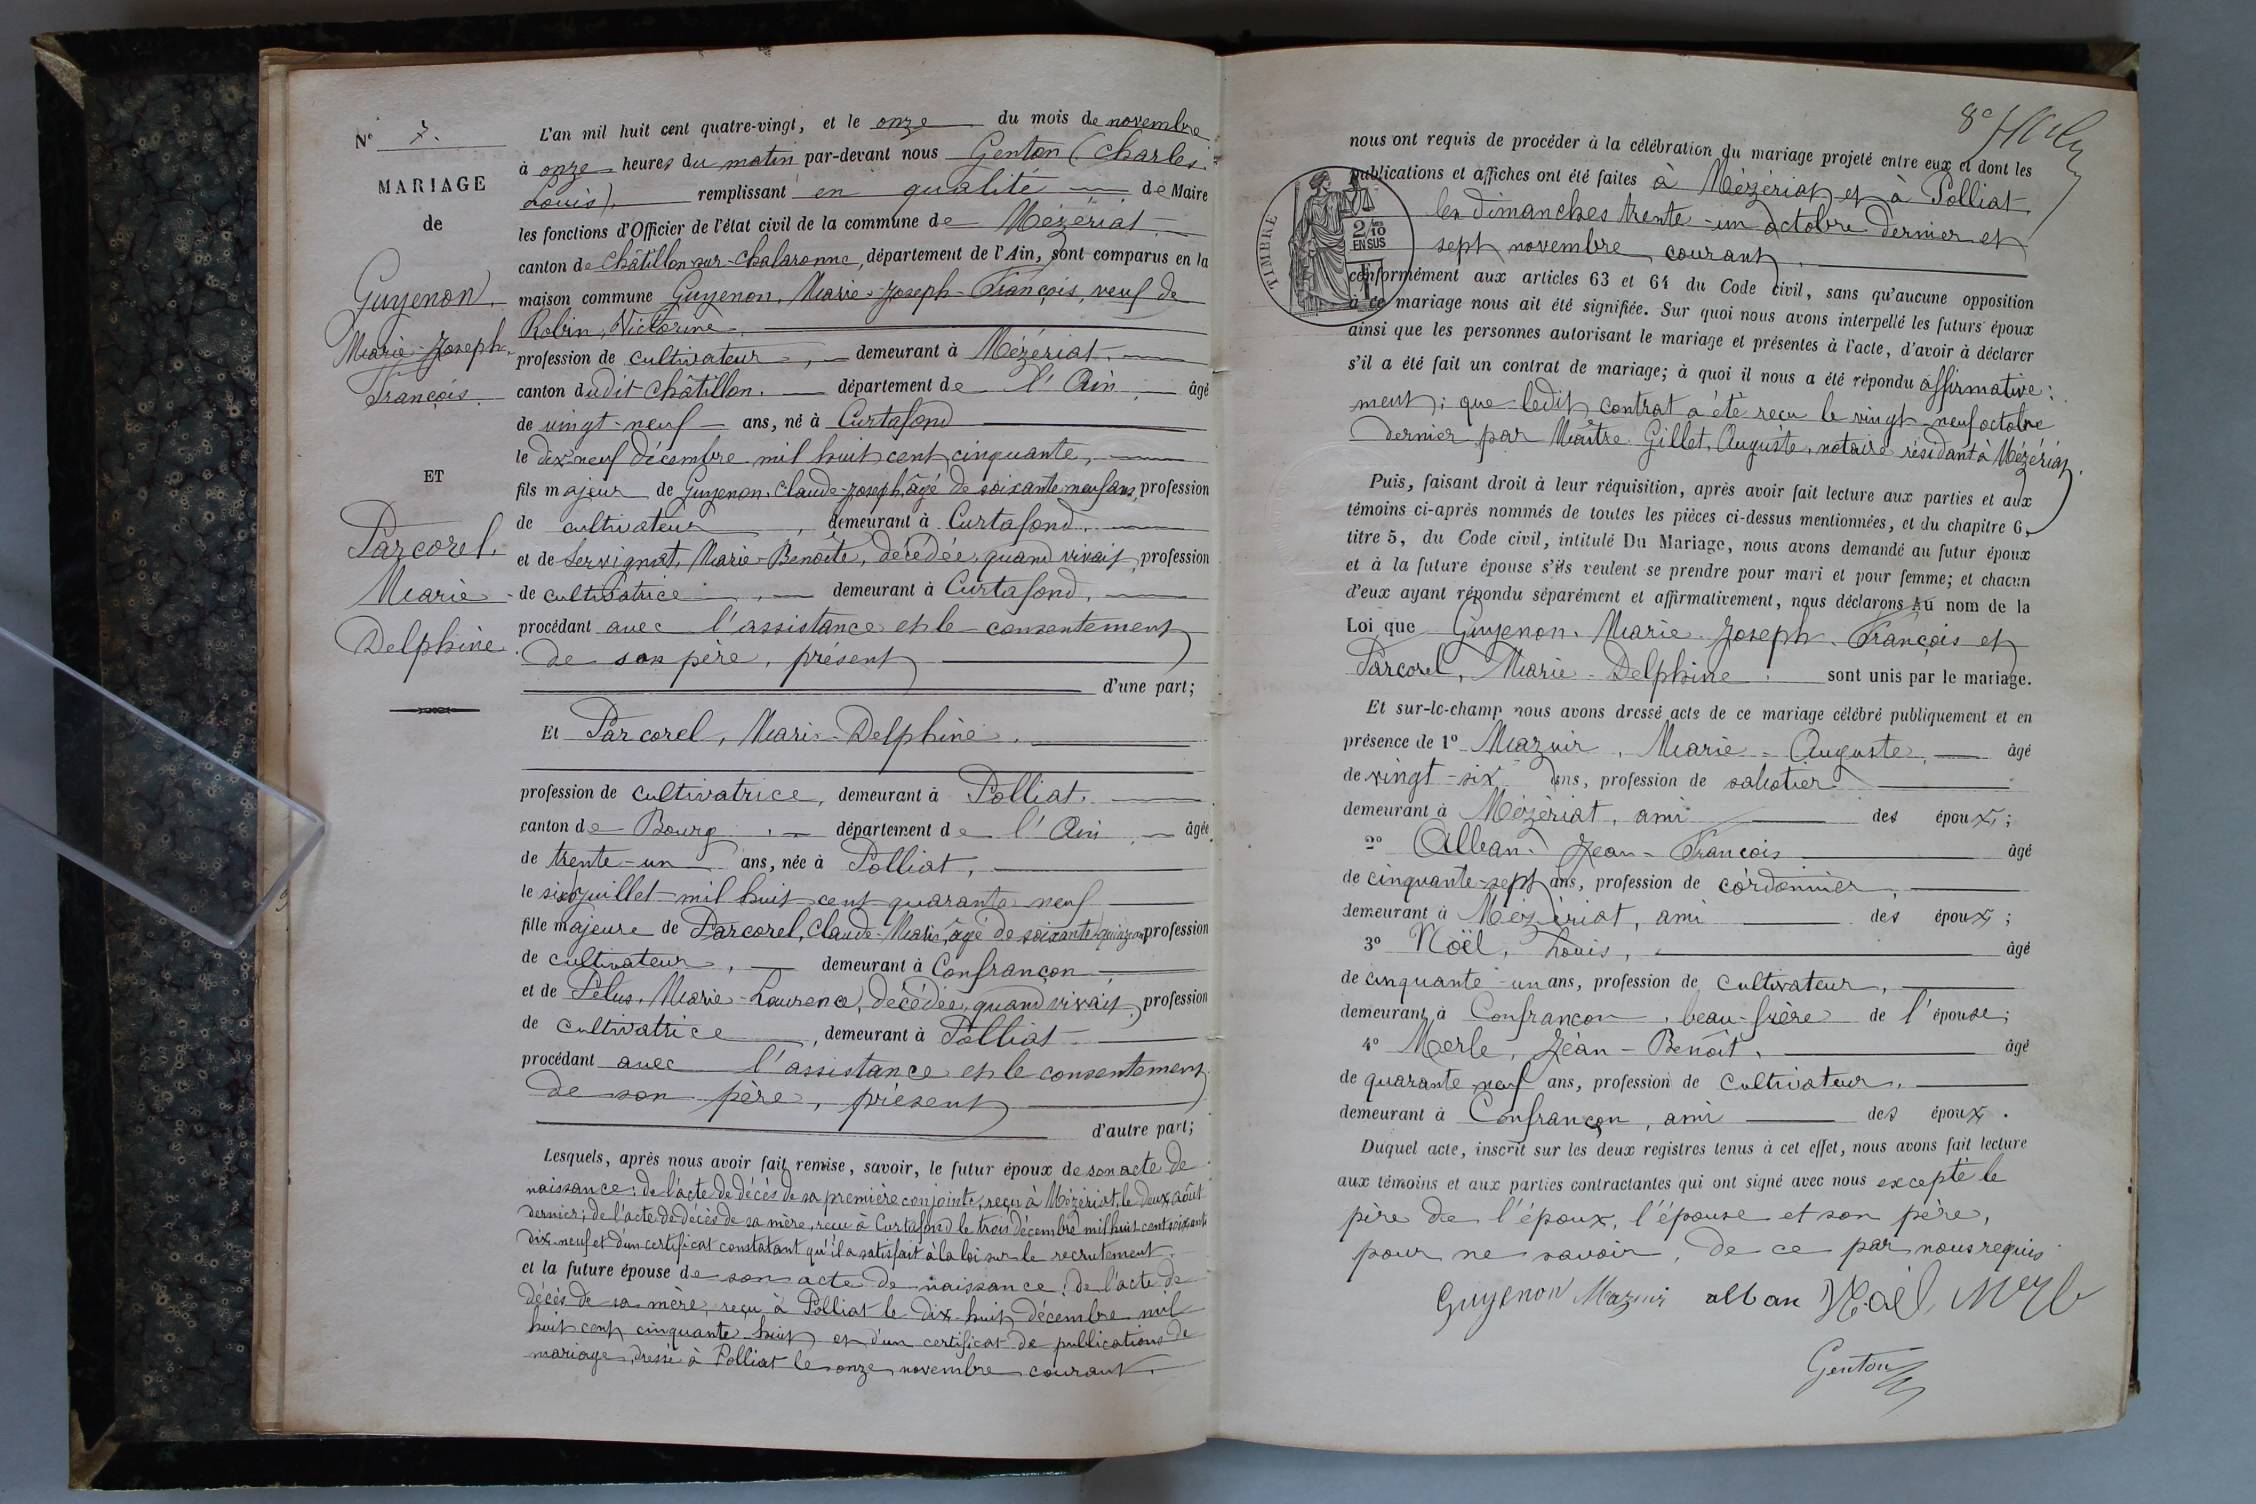 N° 7.
MARIAGE
de
Guyenon,
Marie-Joseph-
François.
ET
Parcorel,
Marie-
Delphine.
L'an mil huit cent quatre-vingt, et le onze du mois de novembre
à onze heures du matin par-devant nous Genton (Charles
Louis), remplissant en qualité de Maire
les fonctions d'Officier de l'état civil de la commune de Mézériat
canton de Châtillon-sur-Chalaronne, département de l'Ain, sont comparus en la
maison commune Guyenon, Marie-Joseph-François, veuf de
Robin, Victorine
profession de cultivateur, demeurant à Mézériat.
canton dudit Châtillon. département de l'Ain, âgé
de vingt-neuf ans, né à Curtafond
le dix-neuf décembre mil huit cent cinquante,
fils majeur de Guyenon, Claude-Joseph, âgé de soixante neuf ans, profession
de cultivateur, demeurant à Curtafond,
et de Servignat, Marie-Benoîte, décédée, quand vivait, profession
de cultivatrice, demeurant à Curtafond,
procédant avec l'assistance et le consentement
de son père, présent
d'une part;
Et Parcorel, Marie-Delphine.
profession de cultivatrice, demeurant à Polliat,
canton de Bourg, département de l'Ain âgée
de trente-un ans, née à Polliat,
le six juillet mil huit cent quarante neuf
fille majeure de Parcorel, Claude-Marie, âgé de soixante-quinze ans profession
de cultivateur, demeurant à Confrançon
et de Pelus, Marie-Laurence, décédée, quand vivait, profession
de cultivatrice, demeurant à Polliat
procédant avec l'assistance et le consentement
de son père, présent
d'autre part;
Lesquels, après nous avoir fait remise, savoir, le futur époux de son acte de
naissance; de l'acte de décès de sa première conjointe, reçu à Mézériat, le deux août
dernier; de l'acte de décès de sa mère, reçu à Curtafond le trois décembre mil huit cent soixante
dix-neuf et d'un certificat constatant qu'il a satisfait à la loi sur le recrutement.
et la future épouse de son acte de naissance; de l'acte de
décès de sa mère, reçu à Polliat le dix-huit décembre mil
huit cent cinquante huit et d'un certificat de publications de
mariage, dressé à Polliat le onze novembre courant.
8e
nous ont requis de procéder à la célébration du mariage projeté entre eux et dont les
publications et affiches ont été faites à Mézériat et à Polliat
les dimanches trente-un octobre dernier et
sept novembre courant
TIMBRE
2/10
EN SUS
conformément aux articles 63 et 64 du Code civil, sans qu'aucune opposition
à ce mariage nous ait été signifiée. Sur quoi nous avons interpellé les futurs époux
ainsi que les personnes autorisant le mariage et présentes à l'acte, d'avoir à déclarer
s'il a été fait un contrat de mariage; à quoi il nous a été répondu affirmative:
ment; que ledit contrat a été reçu le vingt-neuf octobre
dernier par Maître Gillet, Auguste, notaire résidant à Mézériat.
Puis, faisant droit à leur réquisition, après avoir fait lecture aux parties et aux
témoins ci-après nommés de toutes les pièces ci-dessus mentionnées, et du chapitre 6,
titre 5, du Code civil, intitulé Du Mariage, nous avons demandé au futur époux
et à la future épouse s'ils veulent se prendre pour mari et pour femme; et chacun
d'eux ayant répondu séparément et affirmativement, nous déclarons au nom de la
Loi que Guyenon, Marie-Joseph-François et
Parcorel, Marie-Delphine. sont unis par le mariage.
Et sur-le-champ nous avons dressé acte de ce mariage célébré publiquement et en
présence de 1° Mazuir, Marie-Auguste, âgé
de vingt-six ans, profession de sabotier
demeurant à Mézériat, ami des époux;
2° Alban, Jean-François âgé
de cinquante-sept ans, profession de cordonnier,
demeurant à Mézériat, ami des époux;
3° Noël, Louis, âgé
de cinquante-un ans, profession de cultivateur,
demeurant à Confrançon, beau-frère de l'épouse;
4° Merle, Jean-Benoît, âgé
de quarante-neuf ans, profession de cultivateur,
demeurant à Confrançon, ami des époux.
Duquel acte, inscrit sur les deux registres tenus à cet effet, nous avons fait lecture
aux témoins et aux parties contractantes qui ont signé avec nous excepté le
père de l'époux, l'épouse et son père,
pour ne savoir, de ce par nous requis
Guyenon Mazuir alban Noël Merle
Genton